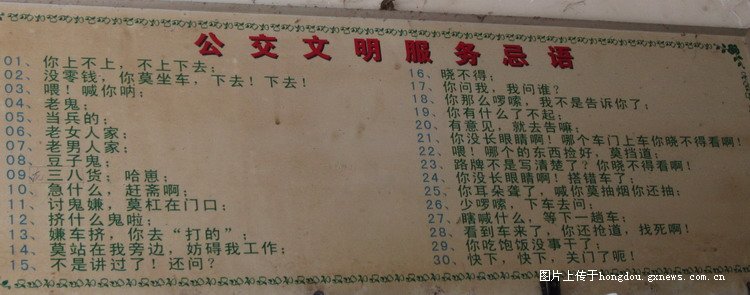 公交文明服务忌语
01、你上不上，不上下去；
02、没零钱，你莫坐车，下去！下去！
03、喂！喊你呐；
04、老鬼；
05、当兵的；
06、老女人家；
07、老男人家；
08、豆子鬼；
09、三八货；哈崽；
10、急什么，赶斋啊；
11、讨鬼嫌，莫杠在门口；
12、挤什么鬼啦；
13、嫌车挤，你去“打的”；
14、莫站在我旁边，妨碍我工作；
15、不是讲过了！还问？
16、晓不得；
17、你问我，我问谁？
18、你那么啰嗦，我不是告诉你了；
19、你有什么了不起；
20、有意见，就去告嘛；
21、你没长眼睛啊！哪个车门上车你晓不得看啊！
22、喂！哪个的东西捡好，莫挡道；
23、路牌不是写清楚了？你晓不得看啊！
24、你没长眼睛啊！搭错车了；
25、你耳朵聋了，喊你莫抽烟你还抽；
26、少啰嗦，下车去问；
27、瞎喊什么，等下一趟车；
28、看到车来了，你还抢道，找死啊！
29、你吃饱饭没事干了；
30、快下，快下，关门了呃！
图片上传于hongdou.gxnews.com.cn